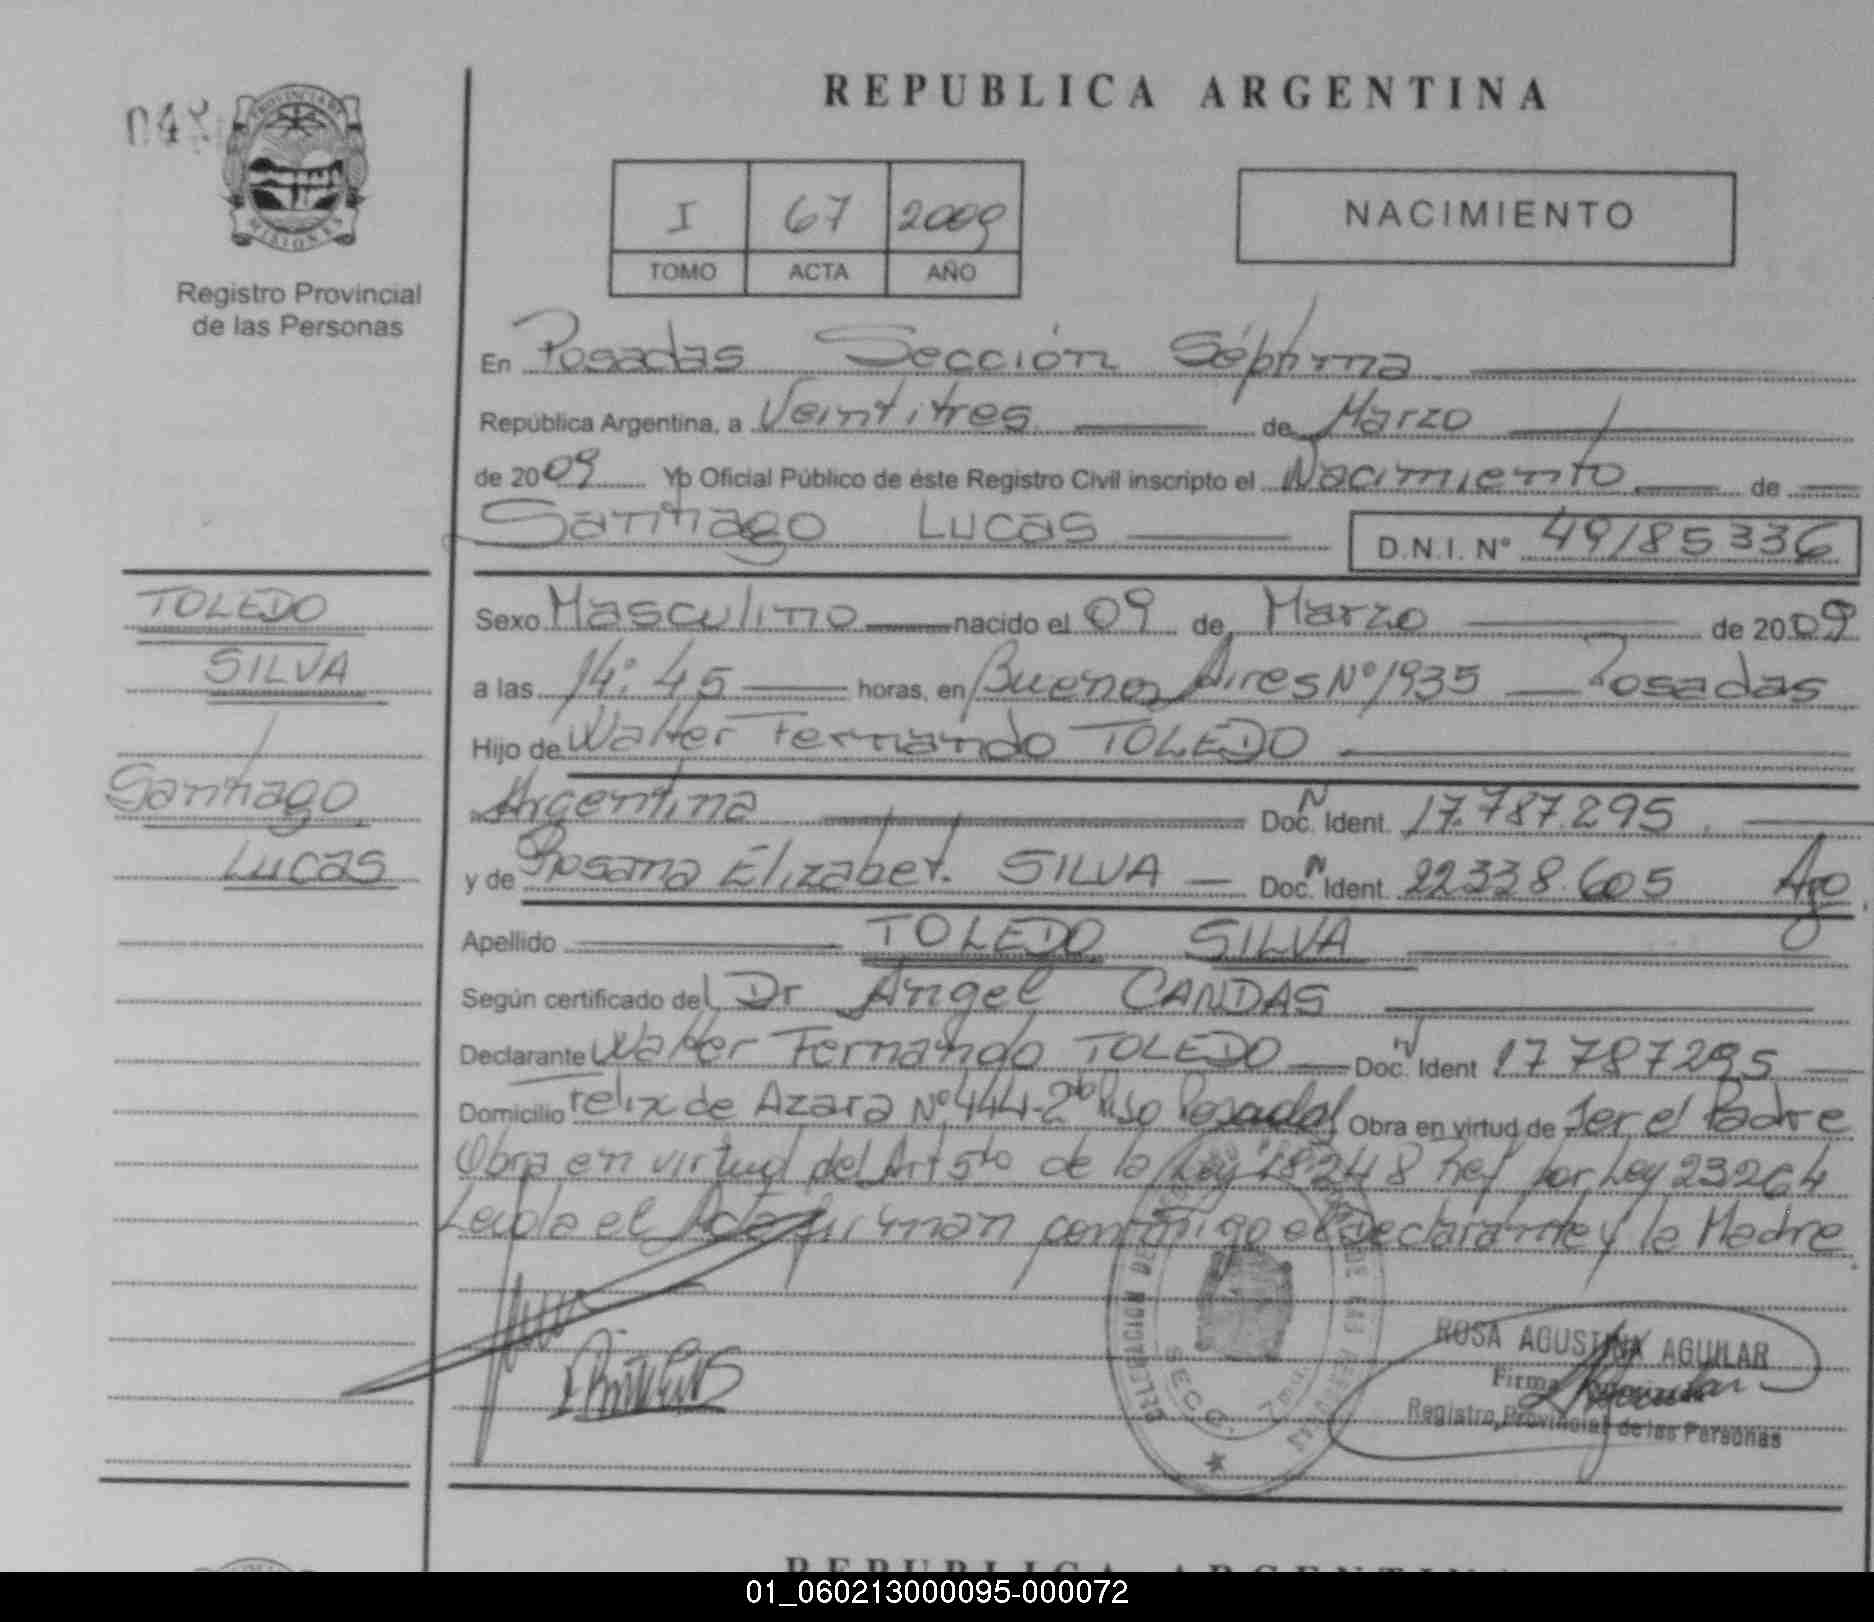 REPUBLICA ARGENTINA
PROVINCIA DE
MISIONES
Registro Provincial
de las Personas
I 67 2009
TOMO ACTA AÑO
NACIMIENTO
En Posadas Sección Séptima
República Argentina, a Veintitres de Marzo
de 2009 Yo Oficial Público de éste Registro Civil inscripto el Nacimiento de
Santiago Lucas D.N.I. Nº 49185336
TOLEDO
SILVA
Santiago
Lucas
Sexo Masculino nacido el 09 de Marzo de 2009
a las 14:45 horas, en Buenos Aires Nº 1935 Posadas
Hijo de Walter Fernando TOLEDO
Argentina Doc. Ident. 17.787.295
y de Rosana Elizabet. SILVA Doc. Ident. 22338.605 Arg
Apellido TOLEDO SILVA
Según certificado del Dr Angel CANDAS
Declarante Walter Fernando TOLEDO Doc. Ident 17787295
Domicilio Felix de Azara Nº 444-2do Piso Posadas Obra en virtud de Ser el Padre
Obra en virtud del Art 5to de la Ley 18248 Ref por Ley 23264
Leida el Acta firman conmigo el Declarante y la Madre
SECC. 7ma.
ROSA AGUSTINA AGUILAR
Firma
Registro Provincial de las Personas
REPUBLICA ARGENTINA
01_060213000095-000072